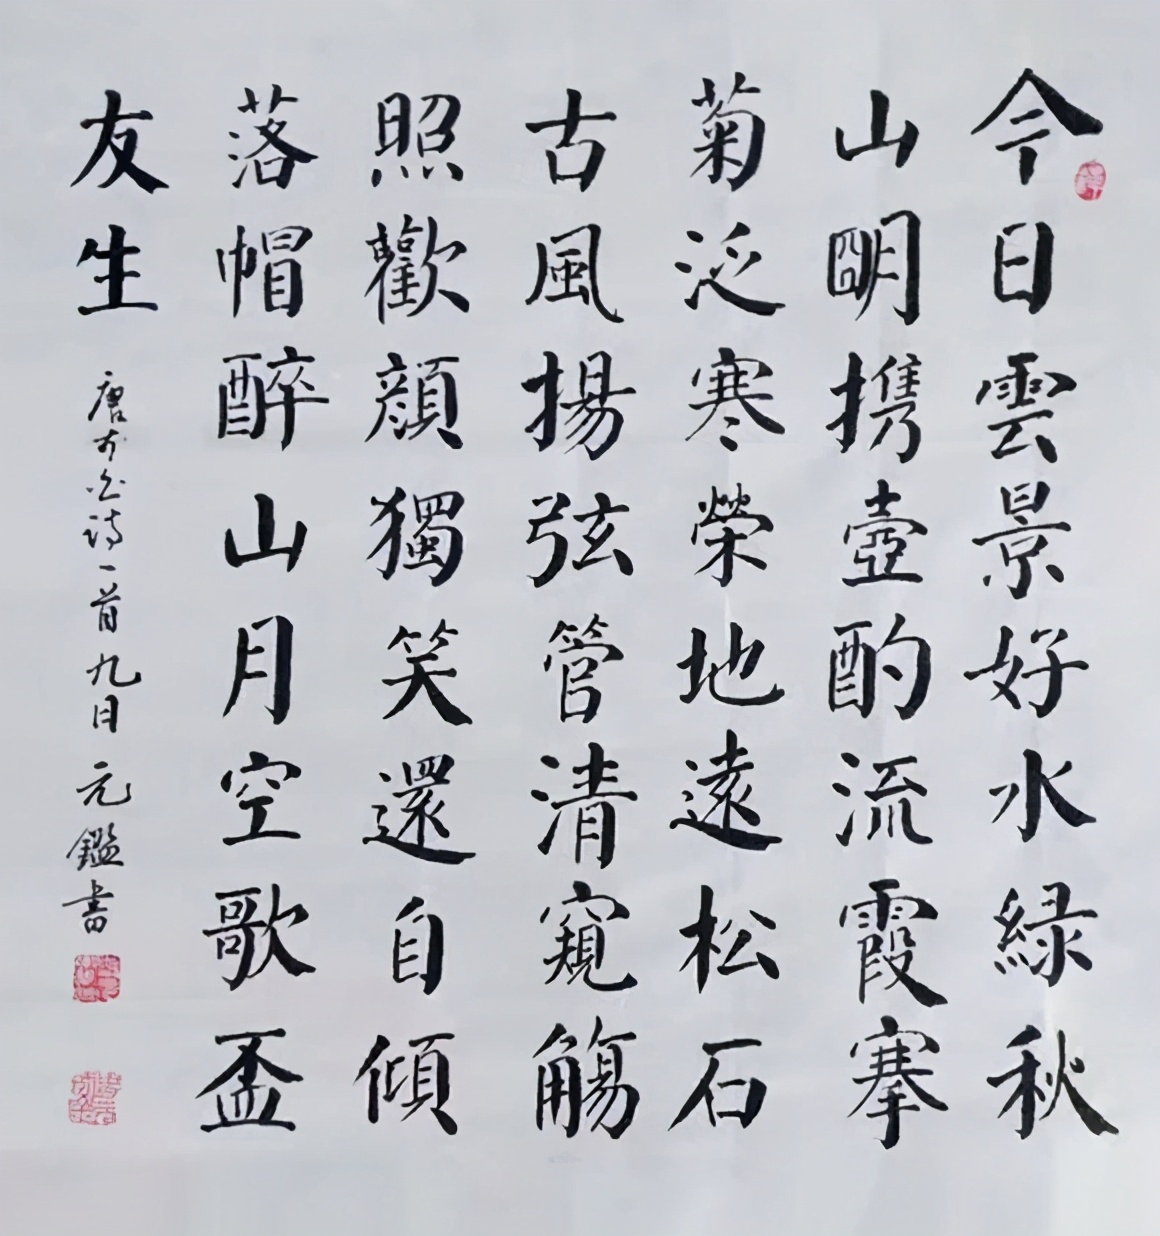 今日雲景好水緑秋
山明携壺酌流霞搴
菊泛寒榮地遠松石
古風揚弦管清窺觴
照歡顔獨笑還自傾
落帽醉山月空歌盃
友生
唐李白詩一首九日元鑑書